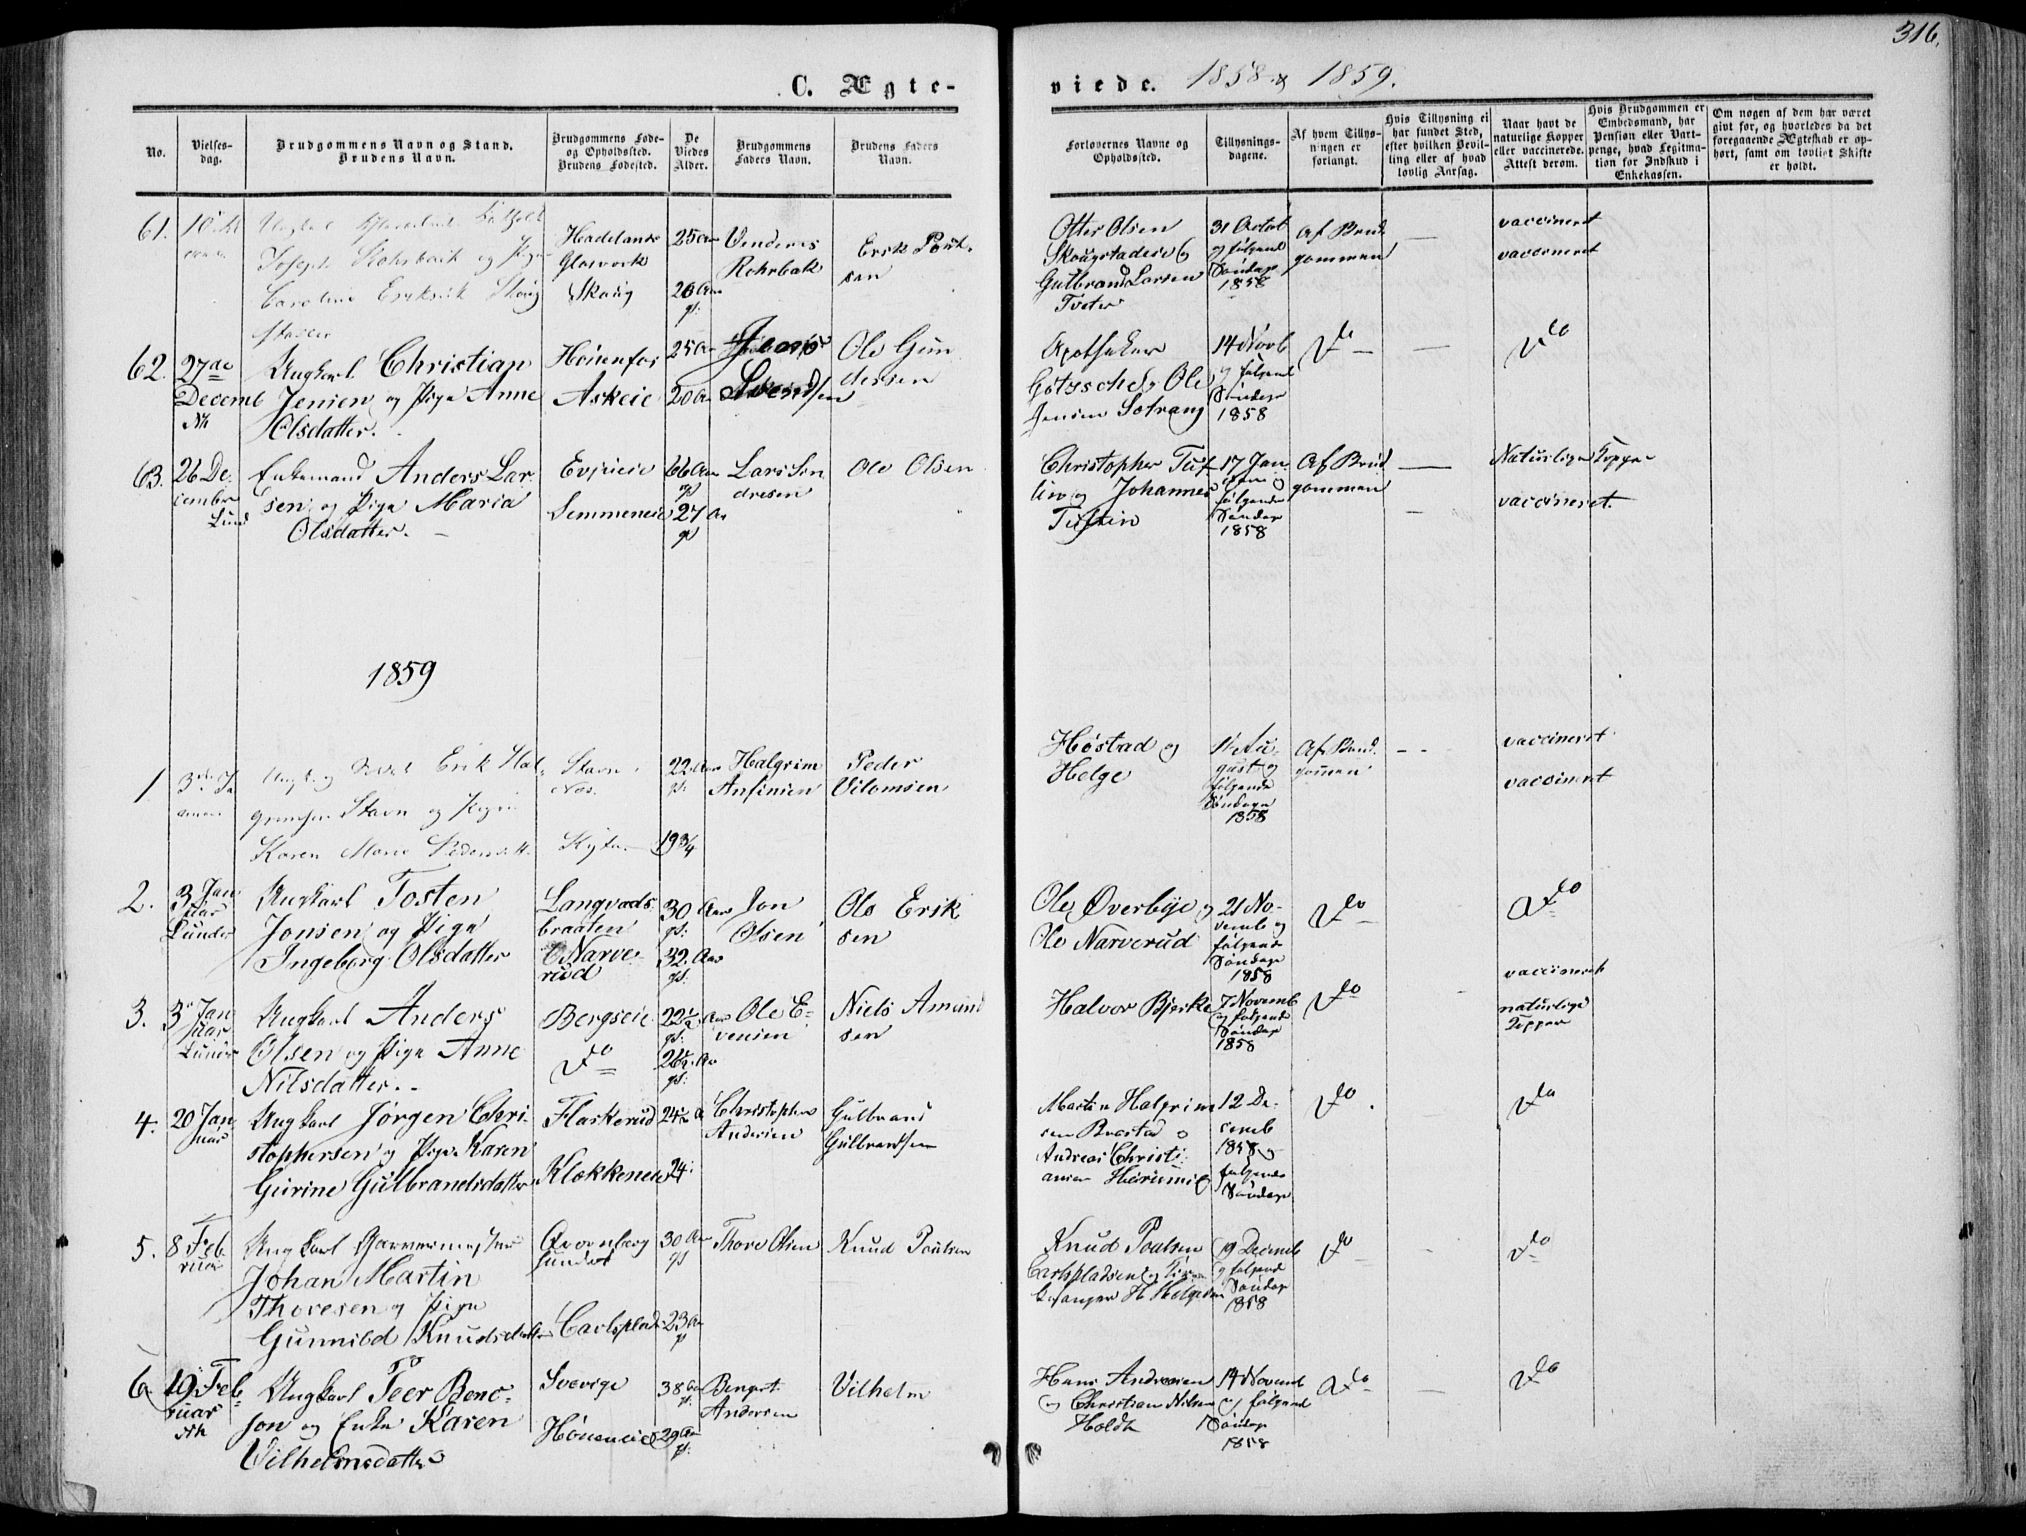 316.
C. Ægte-
viede. 1858 & 1859.
No.
Vielses-
dag.
Brudgommens Navn og Stand.
Brudens Navn.
Brudgommens Føde-
og Opholdssted.
Brudens Fødested.
De
Viedes
Alder.
Brudgommens
Faders Navn.
Brudens Faders
Navn.
Forlovernes Navne og
Opholdssted.
Tillysnings-
dagene.
Af hvem Tillys-
ningen er
forlangt.
Hvis Tillysning ei
har fundet Sted,
efter hvilken Bevil-
ling eller af hvad
lovlig Aarsag.
Naar havt de
naturlige Kopper
eller vaccinerede.
Attest derom.
Hvis Brudgommen er
Embedsmand, har
Pension eller Vart-
penge, hvad Legitima-
tion for Indskud i
Enkekassen.
Om nogen af dem har været
givt før, og hvorledes da det
foregaaende Ægteskab er op-
hørt, samt om lovligt Skifte
er holdt.
61.
Joseph Rohrback og Pige
Caroline Eriksdt Skoug
stadeie
Hadelands
Glasværk
Skoug
25 Aar
20 Aar
gl:
Venderes
Rohrbak
Erik Paul-
sen
Otter Olsen
Skougstadeie og
Gulbrand Larsen
Tveter
31 Octob
og følgend
Søndage
1858
Af Brud
gommen
—
vaccineret
vaccineret
62.
27de
Decemb
Nh
Ungkarl Christian
Jensen og Pige Anne
Olsdatter.
Hønenfos
Askeie
25 Aar
20 Aar
Jens
Svendsen
Ole Gun
dersen
Apotheker
Götzsche og Ole
Jensen Sotrang
14 Novb
og følgend
Søndage
1858
do
—
do
63.
26 De-
cember
Lund
Enkemand Anders Lar-
sen og Pige Maria
Olsdatter.
Evjeeie
Semmeneie
66 Aar
gl
27 Aar
gl
Lars Sen
dresen
Ole Olsen
Christopher Tuf-
tin og Johannes
Tuftin
17 Jan-
uar og
følgende
Søndage
1858
Af Brud
gommen
—
Naturlige Kopper
vaccineret.
1859
1
3die Ja
nuar
Erik Hal-
grimsen Stavn og Pige
Karen Marie Pedersdtt.
Stavn i
Næs.
22 Aar
gl:
19 3/4
Halgrim
Anfinsen
Peder
Vilomsen
Høstad og
Helge
1 Au-
gust og
følgende
Søndage
1858
Af Brud-
gommen
vaccineret
vaccineret
2.
3 Jan
uar
Lunder
Ungkarl Tosten
Jonsen og Pige
Ingeborg Olsdatter
Langvads
braaten
Narve-
rud
30 Aar
gl:
32 Aar
gl:
Jon
Olsen
Ole Erik
sen
Ole Øverbye og
Ole Narverud
21 No-
vemb og
følgend
Søndage
1858
do
do
3.
3 Jan
uar
Lunder
Ungkarl Anders
Olsen og Pige Anne
Nilsdatter.
Bergseie
do
22½ Aar
gl:
26½ Aar
gl:
Ole E-
vensen
Niels Amund
sen
Halvor Bjerke
7 Novemb
og følgende
Søndage
1858
do
vaccineret
naturlige
Kopper
4.
20 Jan
uar
Ungkarl Jørgen Chri-
stophersen og Pige Karen
Gurine Gulbrandsdatter
Flaskerud
Klokkeneie
24
24
Christopher
Andersen
Gulbrand
Gulbrandsen
Martin Halgrim
sen Brestad og
Andreas Christi-
ansen
12 De-
cemb
1858 og
følgende
Søndage
do
do
5.
8 Feb
ruar
Ungkarl Garvermester
Johan Martin
Thoresen og Pige
Gunnild Knudsdatter
sundet
Carlsplads
30 Aar
gl
23 Aar
gl
Thore Olsen
Knud Poulsen
Knud Poulsen
Carlspladsen og Kirke-
sanger H Helgesen
19 Decemb
og følgend
Søndage
1858
do
do
6
19 Feb
ruar
Nh
Ungkarl Peer Benc-
son og Enke Karen
Vilhelmsdatter
Sverige
Høneneie
38 Aar
gl.
29 Aar
gl:
Bengert
Andersen
Vilhelm
Hans Andresen
og Christian Nilsen
Holdt
14 Novemb
og følgend
Søndage
1858
do
—
do